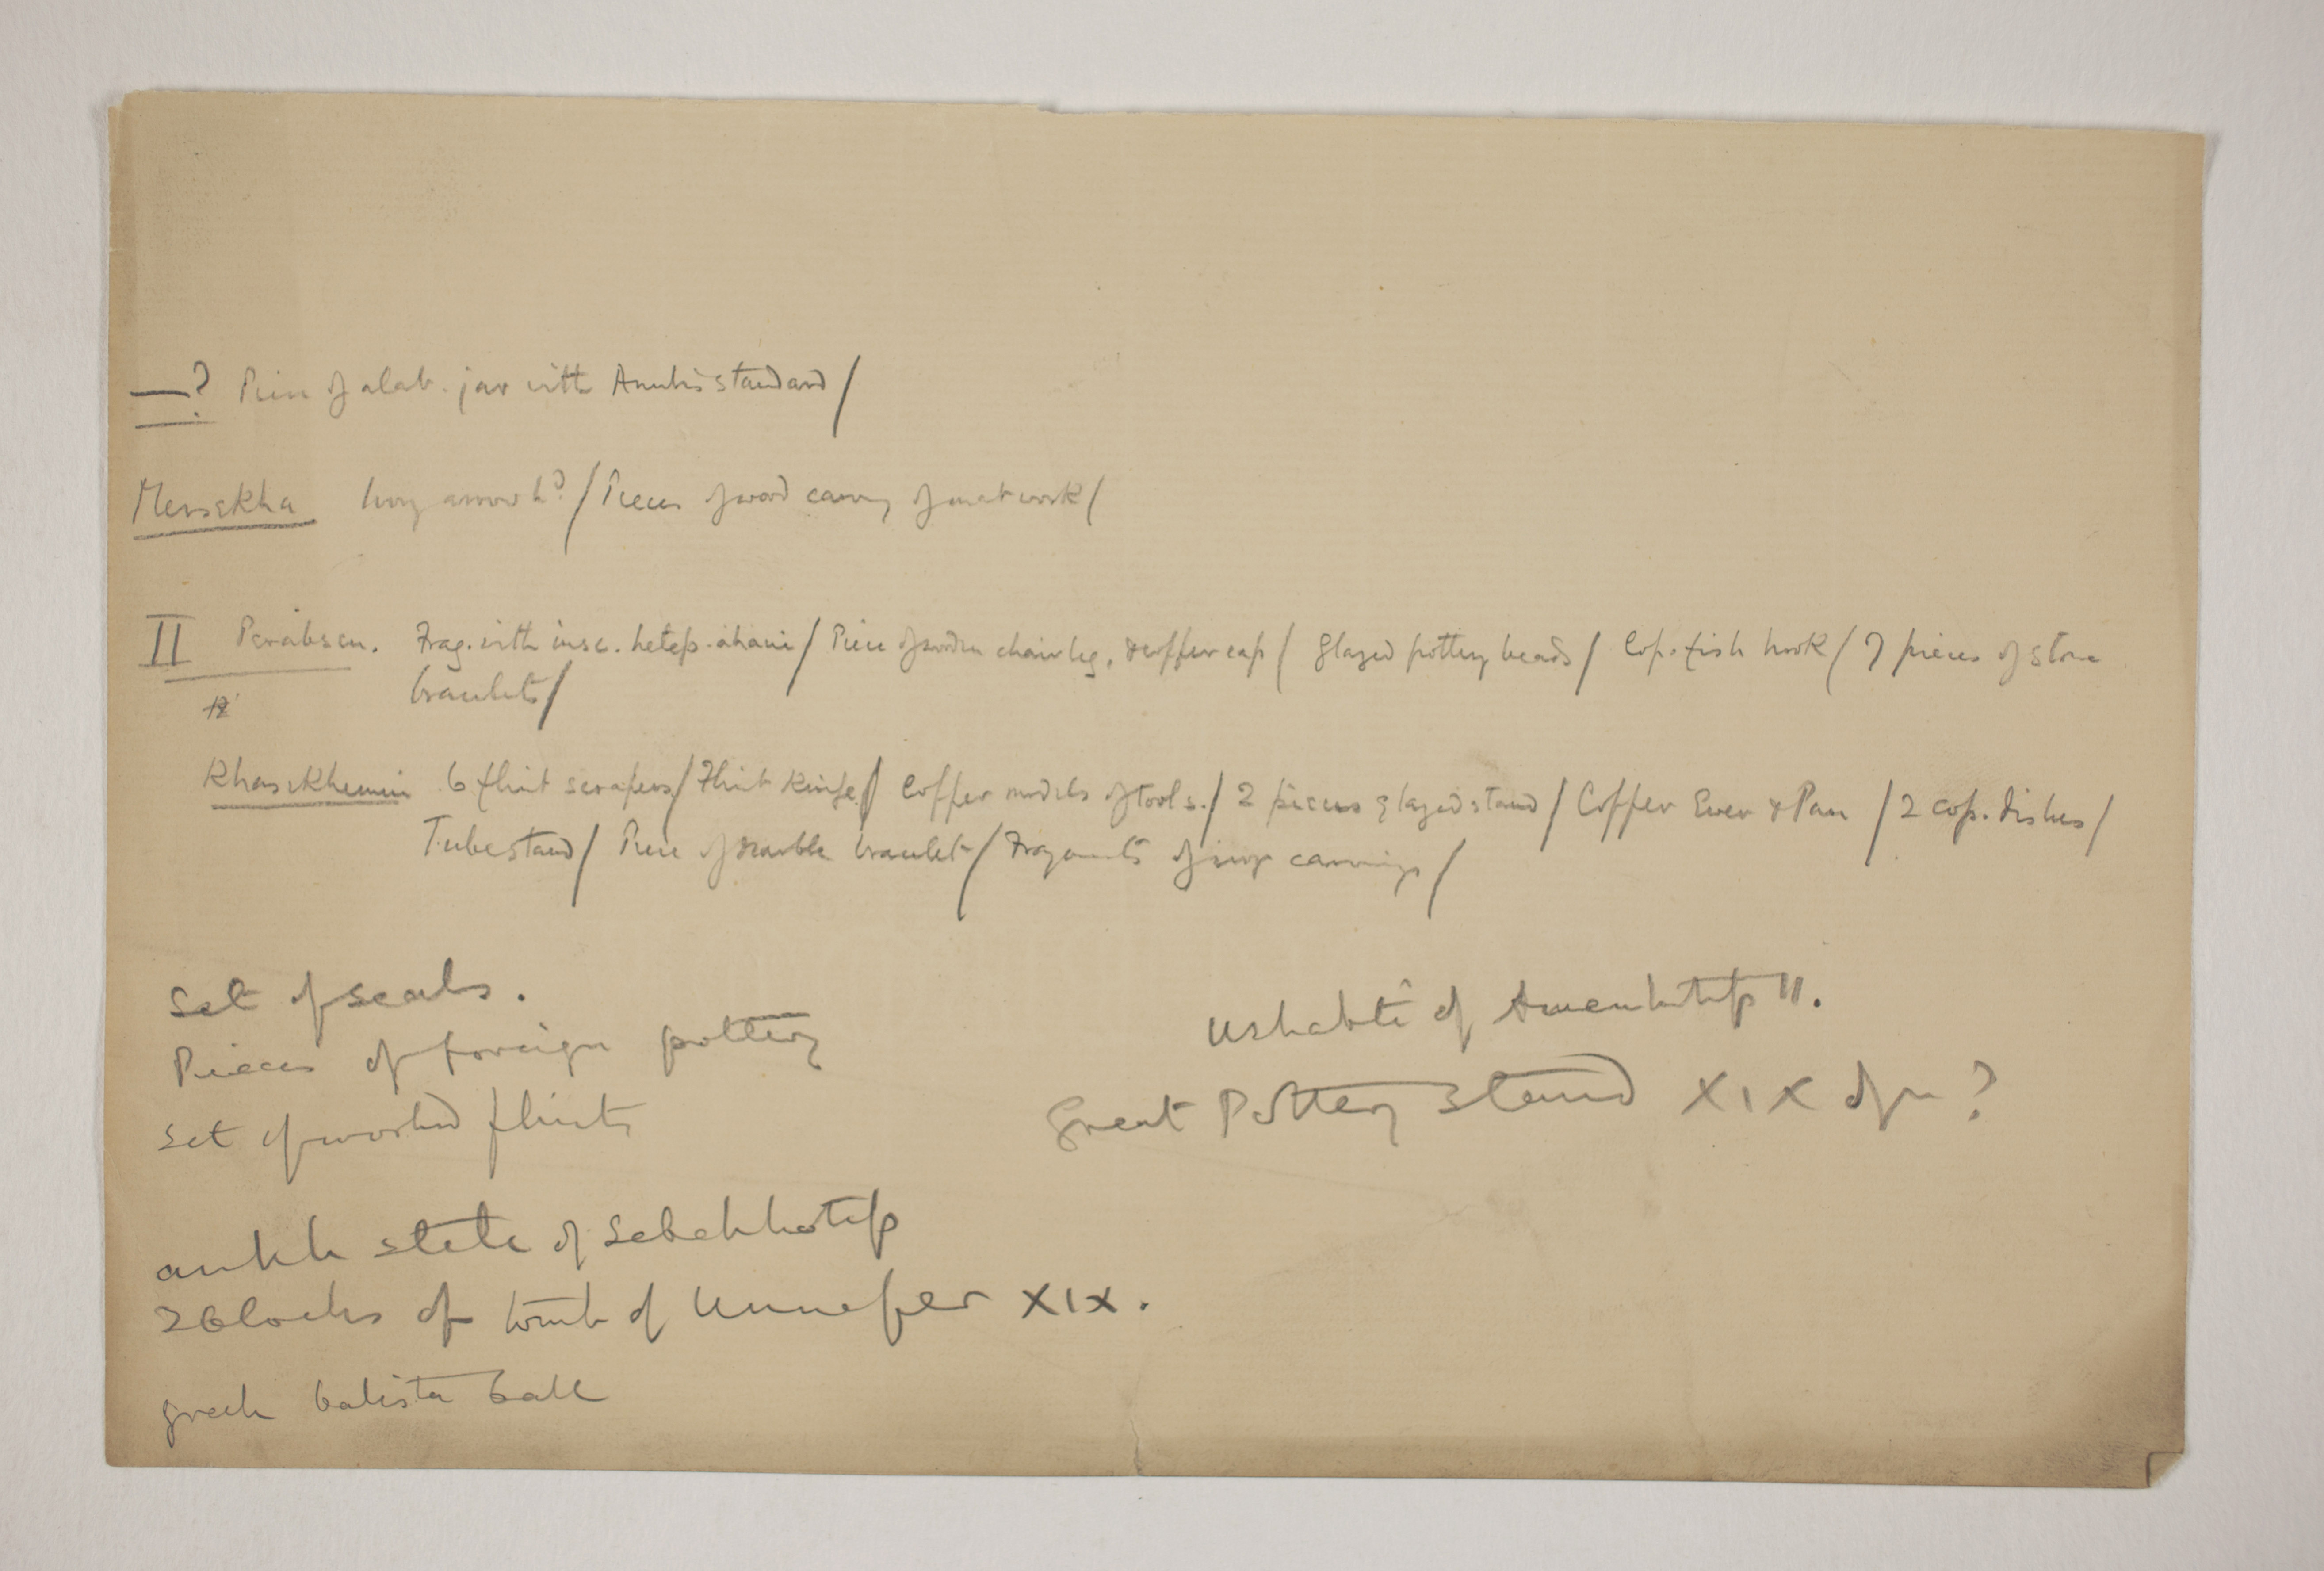 —? Piece of alab. jar with Anubis standard/
Mersekha Ivory arrow h?/ Pieces of wood carving of mat work/
II Perabsen. Frag. with insc. hetep. ahaui/ Piece of wooden chair leg, & copper cap/ Glazed pottery beads/ Cop. fish hook/ 7 pieces of stone
bracelets/
Khasekhemui 6 flint scrapers/ Flint Knife/ Copper models of tools./ 2 pieces glazed stand/ Copper Ewer & Pan/ 2 cop. dishes/
Tube stand/ Piece of marble bracelet/ Fragments of ivory carvings/
Set of seals.
Pieces of foreign pottery
Set of worked flints
Ushabti of Amenhotep II.
Great Pottery Stand XIX dyn?
ankh stele of Sebekhotep
2 blocks of tomb of Unnefer XIX.
greek balista ball